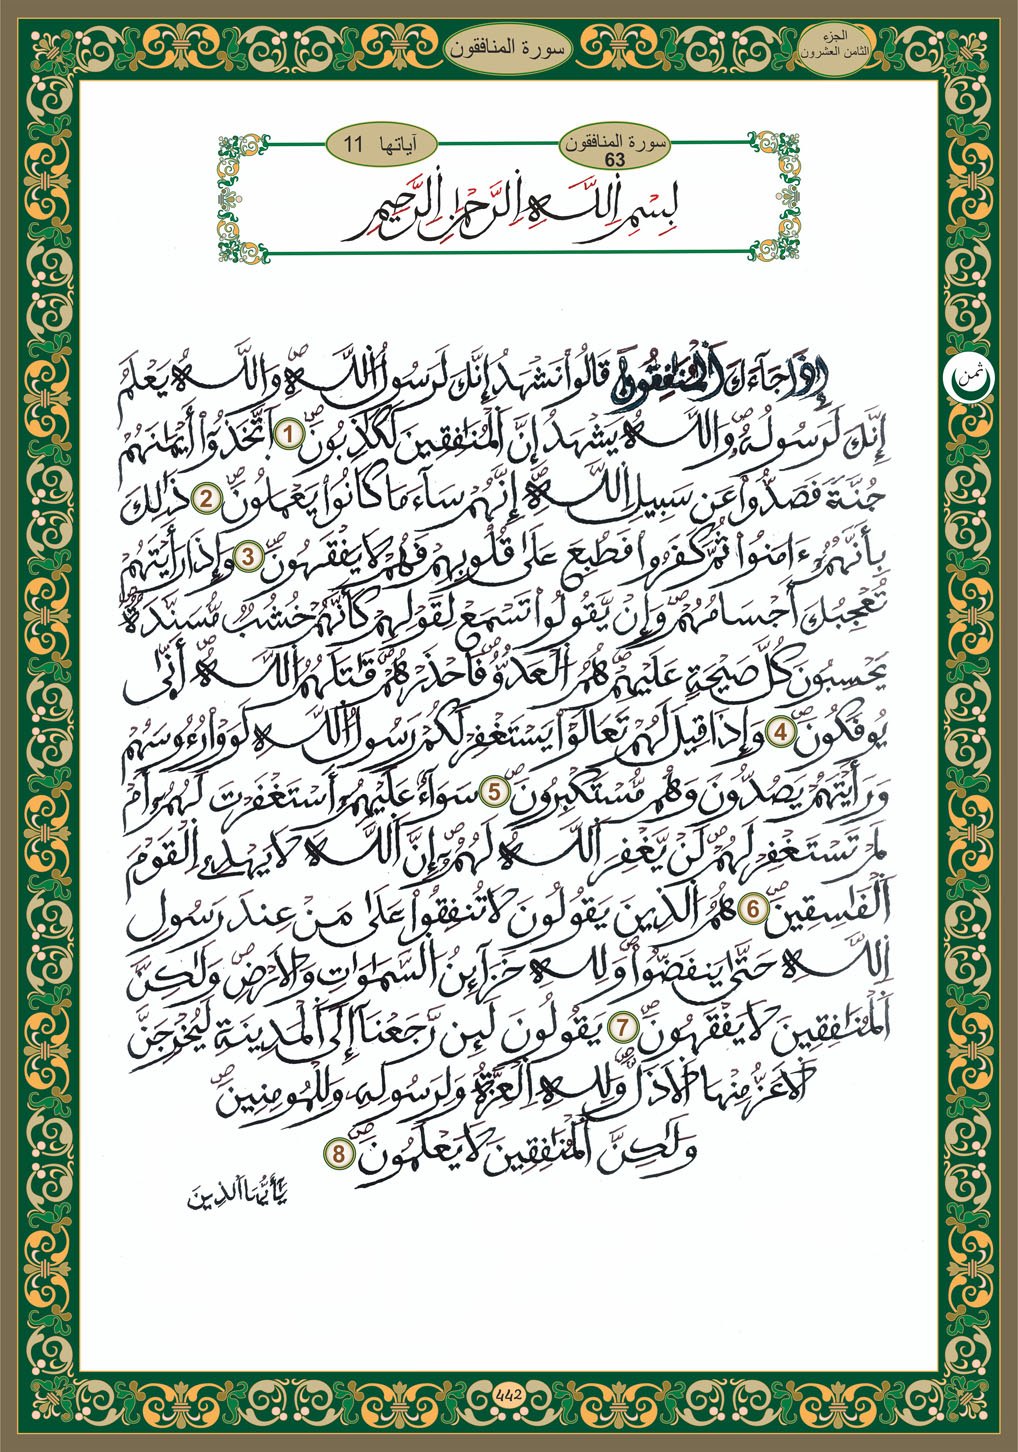 سورة المنافقون
الجزء
الثامن العشرون
سورة المنافقون
63
آياتها 11
بِسْمِ اِللَّهِ اِلرَّحْمَٰنِ اِلرَّحِيمِ
ثمن
إِذَا جَآءَكَ اَلْمُنَٰفِقُونَ قَالُواْ نَشْهَدُ إِنَّكَ لَرَسُولُ اُللَّهِۖ وَاللَّهُ يَعْلَمُ
إِنَّكَ لَرَسُولُهُۥ وَاللَّهُ يَشْهَدُ إِنَّ اَلْمُنَٰفِقِينَ لَكَٰذِبُونَۖ 1 اَتَّخَذُوٓاْ أَيْمَٰنَهُمْ
جُنَّةٗ فَصَدُّواْ عَن سَبِيلِ اِللَّهِۖ إِنَّهُمْ سَآءَ مَا كَانُواْ يَعْمَلُونَۖ 2 ذَٰلِكَ
بِأَنَّهُمُۥٓ ءَامَنُواْ ثُمَّ كَفَرُواْ فَطُبِعَ عَلَىٰ قُلُوبِهِمْ فَهُمْ لَا يَفْقَهُونَۖ 3 وَإِذَا رَأَيْتَهُمْ
تُعْجِبُكَ أَجْسَامُهُمْۖ وَإِنْ يَّقُولُواْ تَسْمَعْ لِقَوْلِهِمْ كَأَنَّهُمْ خُشُبٞ مُّسَنَّدَةٞۖ
يَحْسِبُونَ كُلَّ صَيْحَةٍ عَلَيْهِمْۖ هُمُ اُلْعَدُوُّ فَاحْذَرْهُمْۖ قَٰتَلَهُمُ اُللَّهُۖ أَنَّىٰ
يُوفَكُونَۖ 4 وَإِذَا قِيلَ لَهُمْ تَعَالَوْاْ يَسْتَغْفِرْ لَكُمْ رَسُولُ اُللَّهِ لَوَوْاْ رُءُوسَهُمْ
وَرَأَيْتَهُمْ يَصُدُّونَ وَهُم مُّسْتَكْبِرُونَۖ 5 سَوَآءٌ عَلَيْهِمُۥٓ أَسْتَغْفَرْتَ لَهُمُۥٓ أَمْ
لَمْ تَسْتَغْفِرْ لَهُمْۖ لَنْ يَّغْفِرَ اَللَّهُ لَهُمُۥٓۖ إِنَّ اَللَّهَ لَا يَهْدِے اِلْقَوْمَ
اَلْفَٰسِقِينَۖ 6 هُمُ اُلذِينَ يَقُولُونَ لَا تُنفِقُواْ عَلَىٰ مَنْ عِندَ رَسُولِ
اِللَّهِ حَتَّىٰ يَنفَضُّواْۖ وَلِلَّهِ خَزَآئِنُ اُلسَّمَٰوَٰتِ وَالْأَرْضِۖ وَلَٰكِنَّ
اَلْمُنَٰفِقِينَ لَا يَفْقَهُونَۖ 7 يَقُولُونَ لَئِن رَّجَعْنَآ إِلَى اَلْمَدِينَةِ لَيُخْرِجَنَّ
اَلْأَعَزُّ مِنْهَا اَلْأَذَلَّۖ وَلِلَّهِ اِلْعِزَّةُ وَلِرَسُولِهِۦ وَلِلْمُومِنِينَۖ
وَلَٰكِنَّ اَلْمُنَٰفِقِينَ لَا يَعْلَمُونَۖ 8
يَٰٓأَيُّهَا اَلذِينَ
442